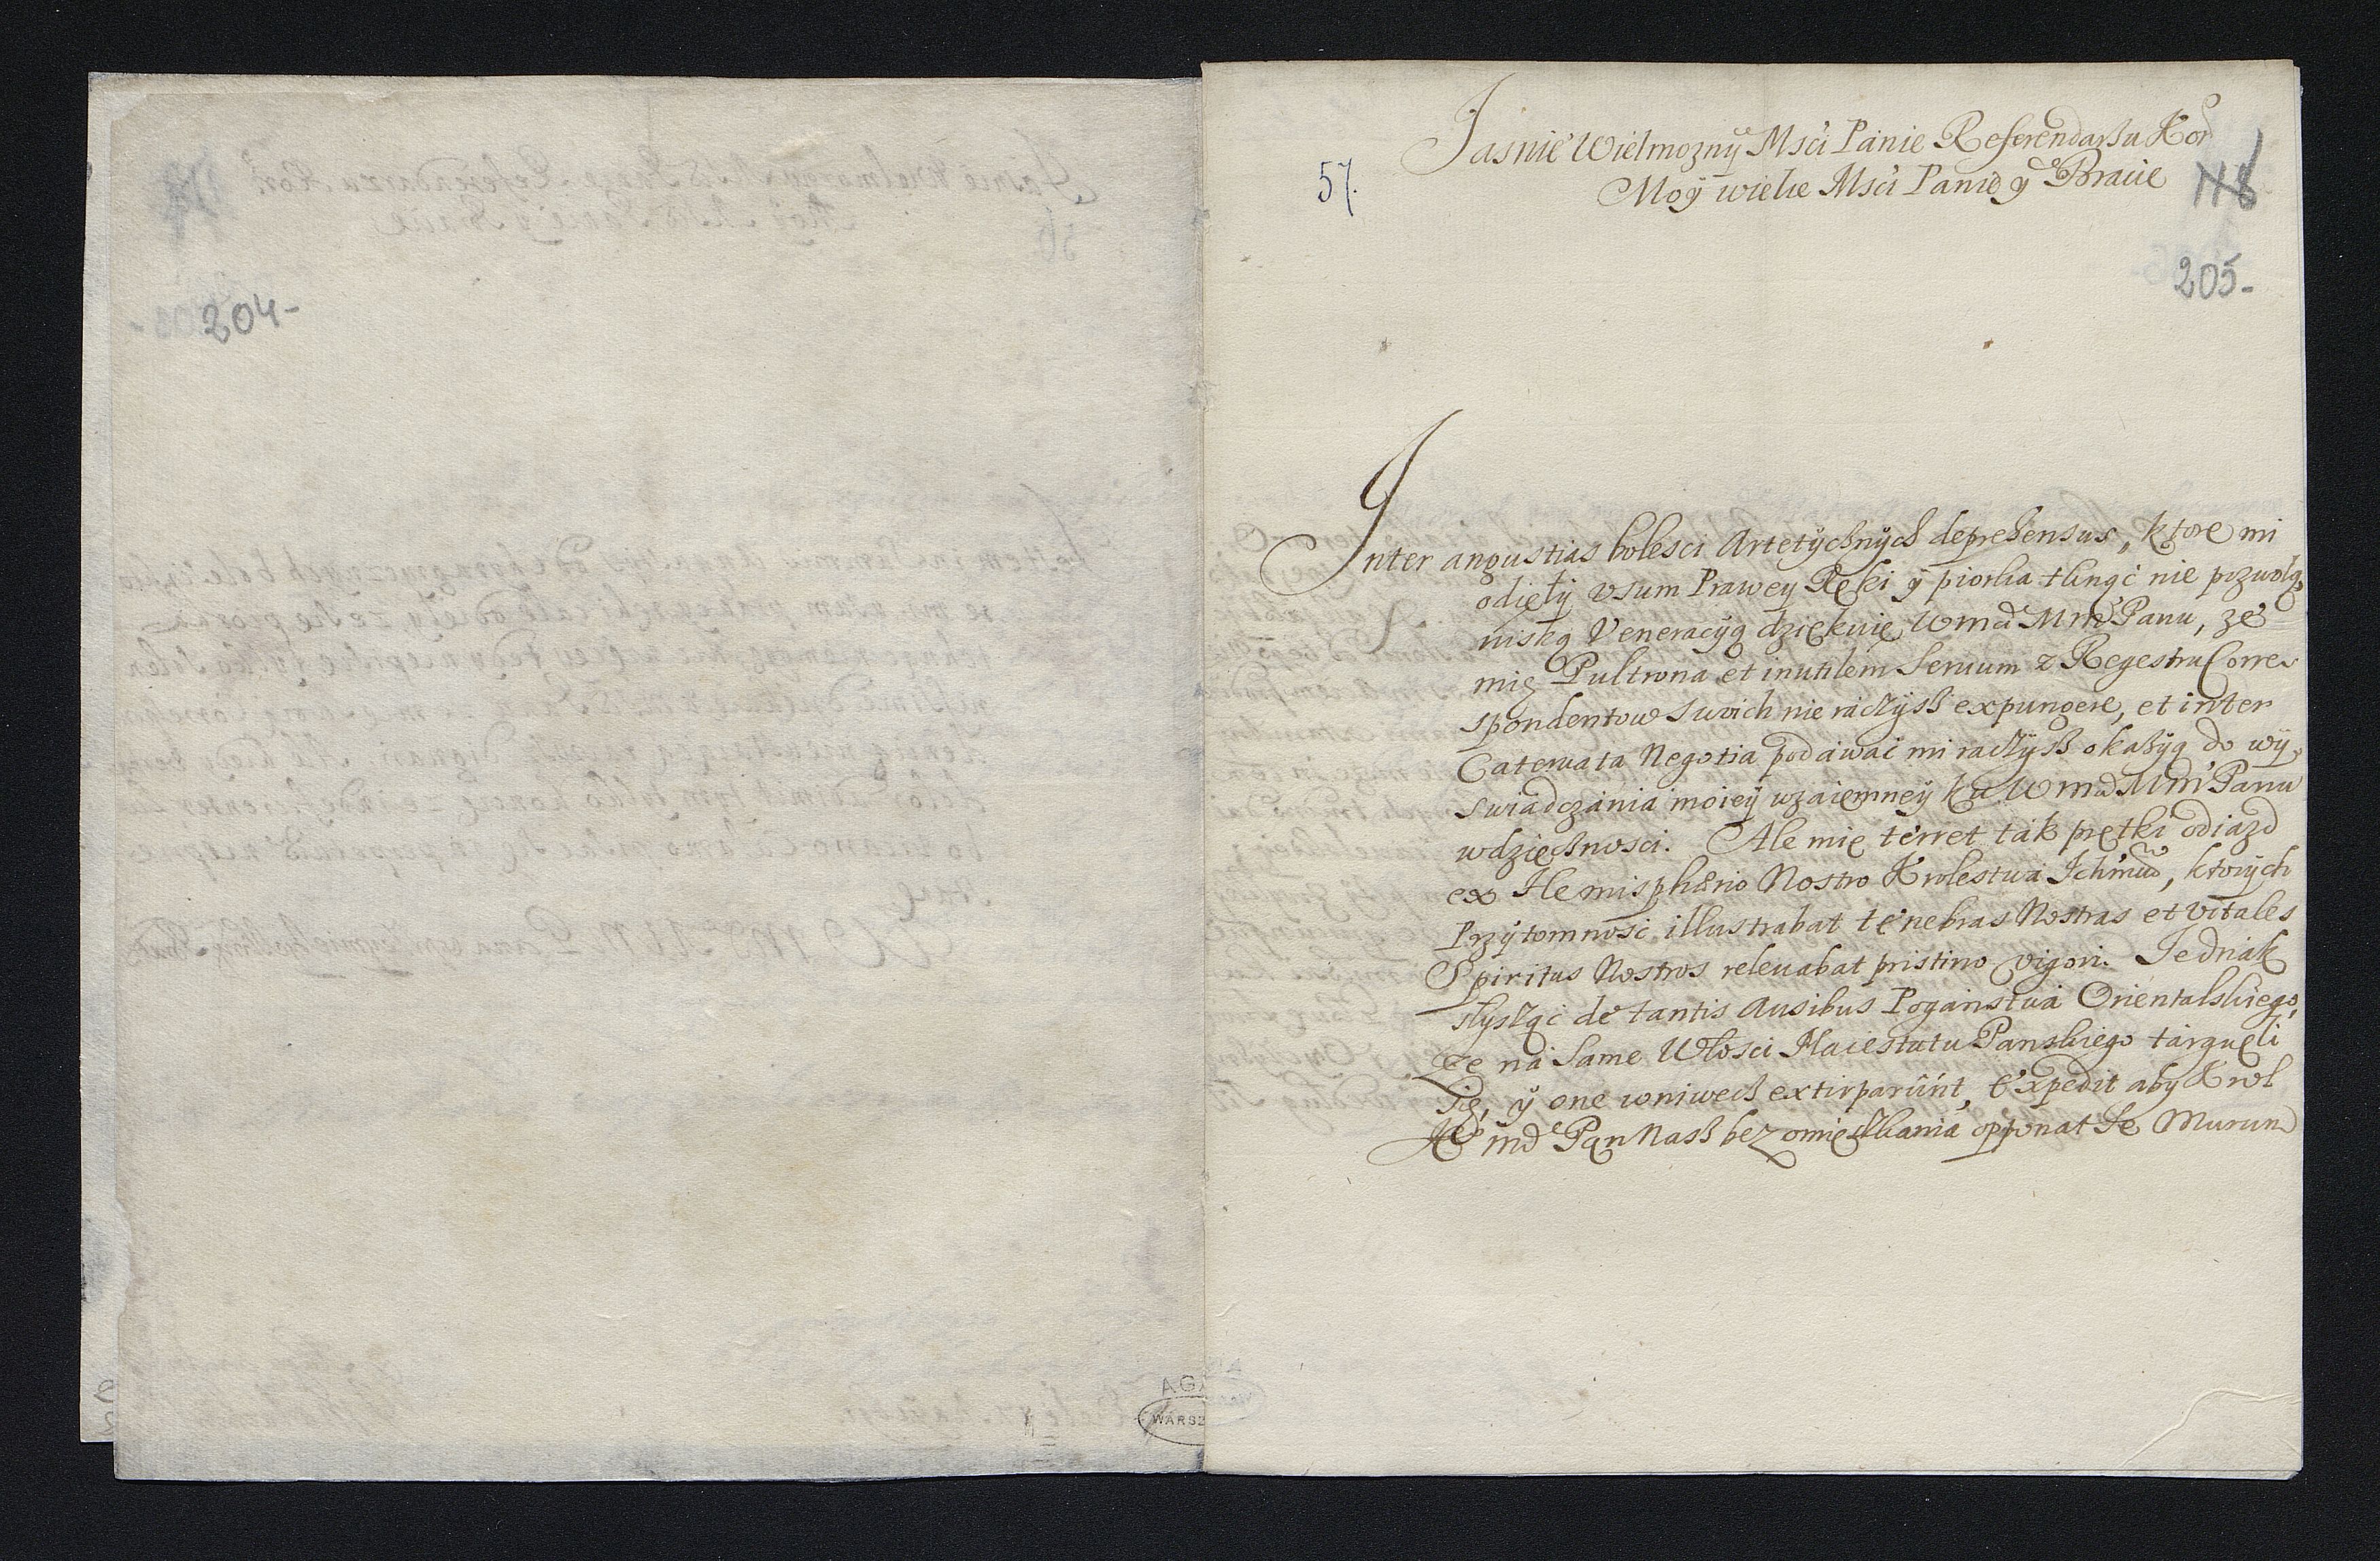 204-
57.
Jasnie Wielmozny Msci Panie Referendarsu Kor
Moy wielce Msci Panie y Bracie
118
205-
Inter angustias bolesci Artetycznych deprehensus, ktore mi
odięły vsum Prawey Ręki y piorka tknąć nie pozwolą,
niską Veneracyą dziękuię Wmci Mmu Panu, ze
mię Pultrona et inutilem Seruum z Regestru Corre-
spondentow swoich nie raczysz expungere, et inter
Cateruata Negotia podawać mi raczysz okazyą do wy-
swiadczania moiey wzaiemney ku Wmci Mmu Panu
wdzięcznosci. Ale mię terret tak prętki odiazd
ex Hemisphærio Nostro Krolestwa Ichmciow, ktorych
Przytomność illustrabat tenebras Nostras et vitales
Spiritus Nostros releuabat pristino vigori. Jednak
słysząc de tantis Ausibus Pogaństwa Orientalskiego,
ze na same Włosci Maiestatu Panskiego targneli
się, y one wniwecz extirparunt, Expedit aby Krol
Je mc Pan Nasz bez omięszkania opponat se Murum
AGA
WARSZ